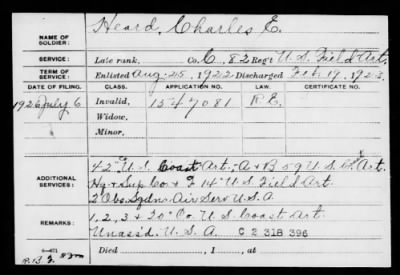 NAME OF SOLDIER: Heard, Charles E.
SERVICE: Late rank, Co. C, 82 Reg't U.S. Field Art.
TERM OF SERVICE: Enlisted Aug. 25, 1922 Discharged Feb 17, 1923.
DATE OF FILING. CLASS. APPLICATION NO. LAW. CERTIFICATE NO.
1926 July 6 Invalid, 1547081 R.E.
Widow,
Minor,
ADDITIONAL SERVICES: 42" U.S. Coast Art., A & B 59 U.S. C. Art.
Hq & Sup Co & F 14" U.S. Field Art
2 Obs. Sqdn. Air Serv U.S.A.
REMARKS: 1, 2, 3 & 20" Co. U.S. Coast Art.
Unass'd. U.S.A. C 2 318 396
Died , 1 , at